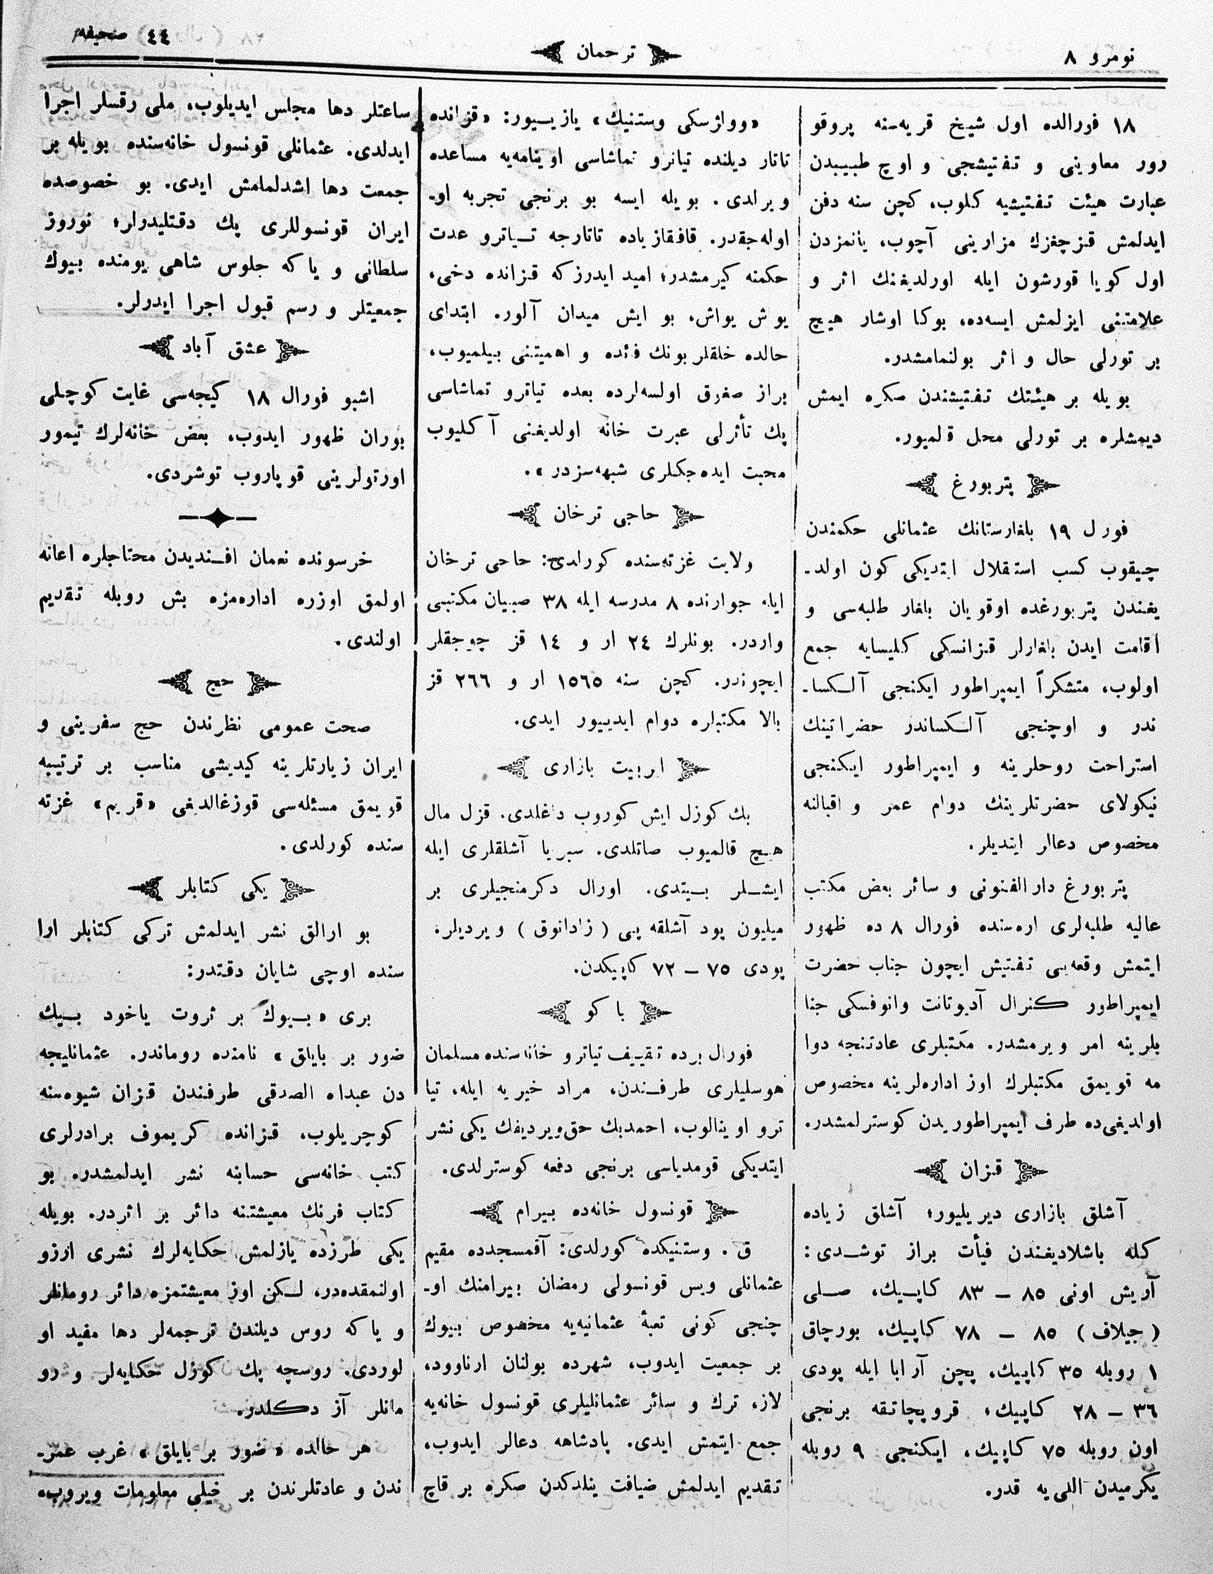 نومرو ٨
ترجمان
(٤٤) صحيفه
١٨ فورالده اول شيخ قريه‌سنه پروقو
رور معاوينى و تفتيشجى و اوچ طبيبدن
عبارت هيئت تفتيشيه كلوب، كچن سنه دفن
ايدلمش قزچغزك مزارينى آچوب، يانمزدن
اول كويا قورشون ايله اورلديغنك اثر و
علامتنى ايزلمش ايسه‌ده، بوكا اوشار هيچ
بر تورلى حال و اثر بولنمامشدر.
بويله بر هيئتك تفتيشندن صكره ايمش
ديمشلره بر تورلى محل قالميور.
پتربورغ
فورال ١٩ بلغارستانك عثمانلى حكمندن
چيقوب كسب استقلال ايتديكى كون اولد-
يغندن پتربورغده اوقويان بلغار طلبه‌سى و
اقامت ايدن بلغارلر قزانسكى كليسايه جمع
اولوب، متشكراً ايمپراطور ايكنجى آلكسا-
ندر و اوچنجى آلكساندر حضراتينك
استراحت روحلرينه و ايمپراطور ايكنجى
نيكولاى حضرتلرينك دوام عمر و اقبالنه
مخصوص دعالر ايتديلر.
پتربورغ دارالفنونى و سائر بعض مكتب
عاليه طلبه‌لرى اره‌سنده فورال ٨ ده ظهور
ايتمش وقعه‌يى تفتيش ايچون جناب حضرت
ايمپراطور كنرال آديوتانت وانوفسكى جنا
بلرينه امر ويرمشدر. مكتبلرى عادتنجه دوا
مه قويمق مكتبلرك اوز اداره‌لرينه مخصوص
اولديغى‌ده طرف ايمپراطوريدن كوسترلمشدر.
قزان
آشلق بازارى ديريليور؛ آشلق زياده
كله باشلاديغندن فيأت براز توشدى:
آريش اونى ٨٥ – ٨٣ كاپيك، صلى
(جيلاف) ٨٥ – ٧٨ كاپيك، بورچاق
١ روبله ٣٥ كاپيك، پچن آرابا ايله پودى
٣٦ – ٢٨ كاپيك، قروپچاتقه برنجى
اون روبله ٧٥ كاپيك، ايكنجى ٩ روبله
يكرميدن اللى‌يه قدر.
«وولژسكى وستنيك» يازييور: «قزانده
تاتار ديلنده تياترو تماشاسى اوينامه‌يه مساعده
ويرلدى. بويله ايسه بو برنجى تجربه او-
اوله‌جقدر. قافقازياده تاتارجه تياترو عدت
حكمنه كيرمشدر؛ اميد ايدرزكه قزانده دخى،
يوش يواش، بو ايش ميدان آلور. ابتداى
حالده خلقلر بونك فائده و اهميتنى بيلميوب،
براز صغرق اولسه‌لرده بعده تياترو تماشاسى
پك تأثرلى عبرت خانه اولديغنى آكليوب
محبت ايده‌جكلرى شبهه‌سزدر».
حاجى ترخان
ولايت غزته‌سنده كورلدى: حاجى ترخان
ايله جوارنده ٨ مدرسه ايله ٣٨ صبيان مكتبى
واردر. بونلرك ٢٤ ار و ١٤ قز چوجقلر
ايچوندر. كچن سنه ١٥٦٥ ار و ٢٦٦ قز
بالا مكتبلره دوام ايدييور ايدى.
ايربيت بازارى
بك كوزل ايش كوروب داغلدى. قزل مال
هيچ قالميوب صاتلدى. سبريا آشلقلرى ايله
ايشلر بيتدى. اورال دكرمنجيلرى بر
ميليون پود آشلقه پى (زاداتوق) ويرديلر،
پودى ٧٥ – ٧٢ كاپيكدن.
باكو
فورال برده تقييف تياترو خانه‌سنده مسلمان
هوسليلرى طرفندن، مراد خيريه ايله، تيا
ترو اوينالوب، احمدبك حق‌ويرديفك يكى نشر
ايتديكى قومدياسى برنجى دفعه كوسترلدى.
قونسول خانه‌ده بيرام
ق. وستنيكده كورلدى: آقمسجدده مقيم
عثمانلى ويس قونسولى رمضان بيرامنك او-
چنجى كونى تبعۀ عثمانيه‌يه مخصوص بيوك
بر جمعيت ايدوب، شهرده بولنان ارناوود،
لاز، ترك و سائر عثمانليلرى قونسول خانه‌يه
جمع ايتمش ايدى. پادشاهه دعالر ايدوب،
تقديم ايدلمش ضيافت ينلدكدن صكره بر قاچ
ساعتلر دها مجلس ايديلوب، ملى رقسلر اجرا
ايدلدى. عثمانلى قونسول خانه‌سنده بويله بر
جمعت دها اشدلمامش ايدى. بو خصوصده
ايران قونسوللرى پك دقتليدرلر؛ نوروز
سلطانى و ياكه جلوس شاهى يومنده بيوك
جمعيتلر و رسم قبول اجرا ايدرلر.
عشق آباد
اشبو فورال ١٨ كيجه‌سى غايت كوچلى
بوران ظهور ايدوب، بعض خانه‌لرك تيمور
اورتولرينى قوپاروب توشردى.
خرسونده نعمان افنديدن محتاجلره اعانه
اولمق اوزره اداره‌مزه بش روبله تقديم
اولندى.
حج
صحت عمومى نظرندن حج سفرينى و
ايران زيارتلرينه كيديشى مناسب بر ترتيبه
قويمق مسئله‌سى قوزغالديغى «قريم» غزته
سنده كورلدى.
يكى كتابلر
بو ارالق نشر ايدلمش تركى كتابلر ارا
سنده اوچى شايان دقتدر:
برى «بيوك بر ثروت ياخود بيك
ضور بر بايلق» نامنده روماندر. عثمانليجه
دن عبدالله الصدقى طرفندن قزان شيوه‌سنه
كوچريلوب، قزانده كريموف برادرلرى
كتب خانه‌سى حسابنه نشر ايدلمشدر. بو
كتاب فرنك معيشتنه دائر بر اثردر. بويله
يكى طرزده يازلمش حكايه‌لرك نشرى ارزو
اولنمقده‌در، لكن اوز معيشتمزه دائر رومانلر
و ياكه روس ديلندن ترجمه‌لر دها مفيد او
لوردى. روسچه پك كوزل حكايه‌لر و رو
مانلر آز دكلدر.
هر حالده «ضور بر بايلق» غرب عمر-
ندن و عادتلرندن بر خيلى معلومات ويروب،